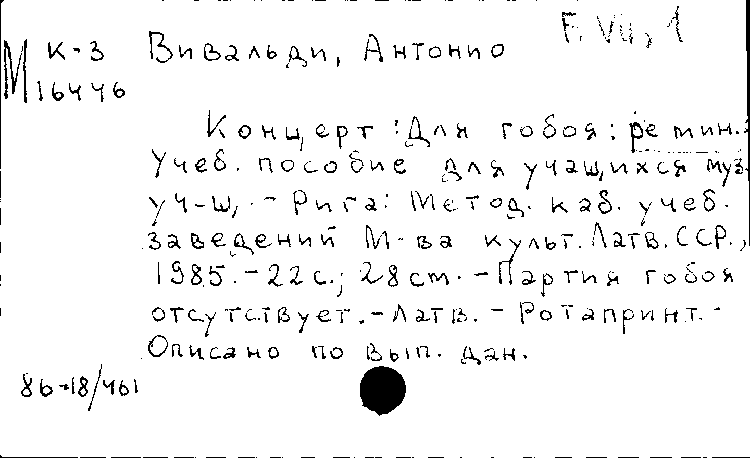 F. VII, 1
М К-3 Вивальди, Антонио
16446
Концерт: Для гобоя: ре мин.:
Учеб. пособие для учащихся муз.
уч-щ. - Рига: Метод. каб. учеб.
заведений М-ва культ. Латв. ССР.,
1985. - 22 с.; 28 cm. - Партия гобоя
отсутствует. - Латв. - Ротапринт. -
Описано по вып. дан.
86-18/461